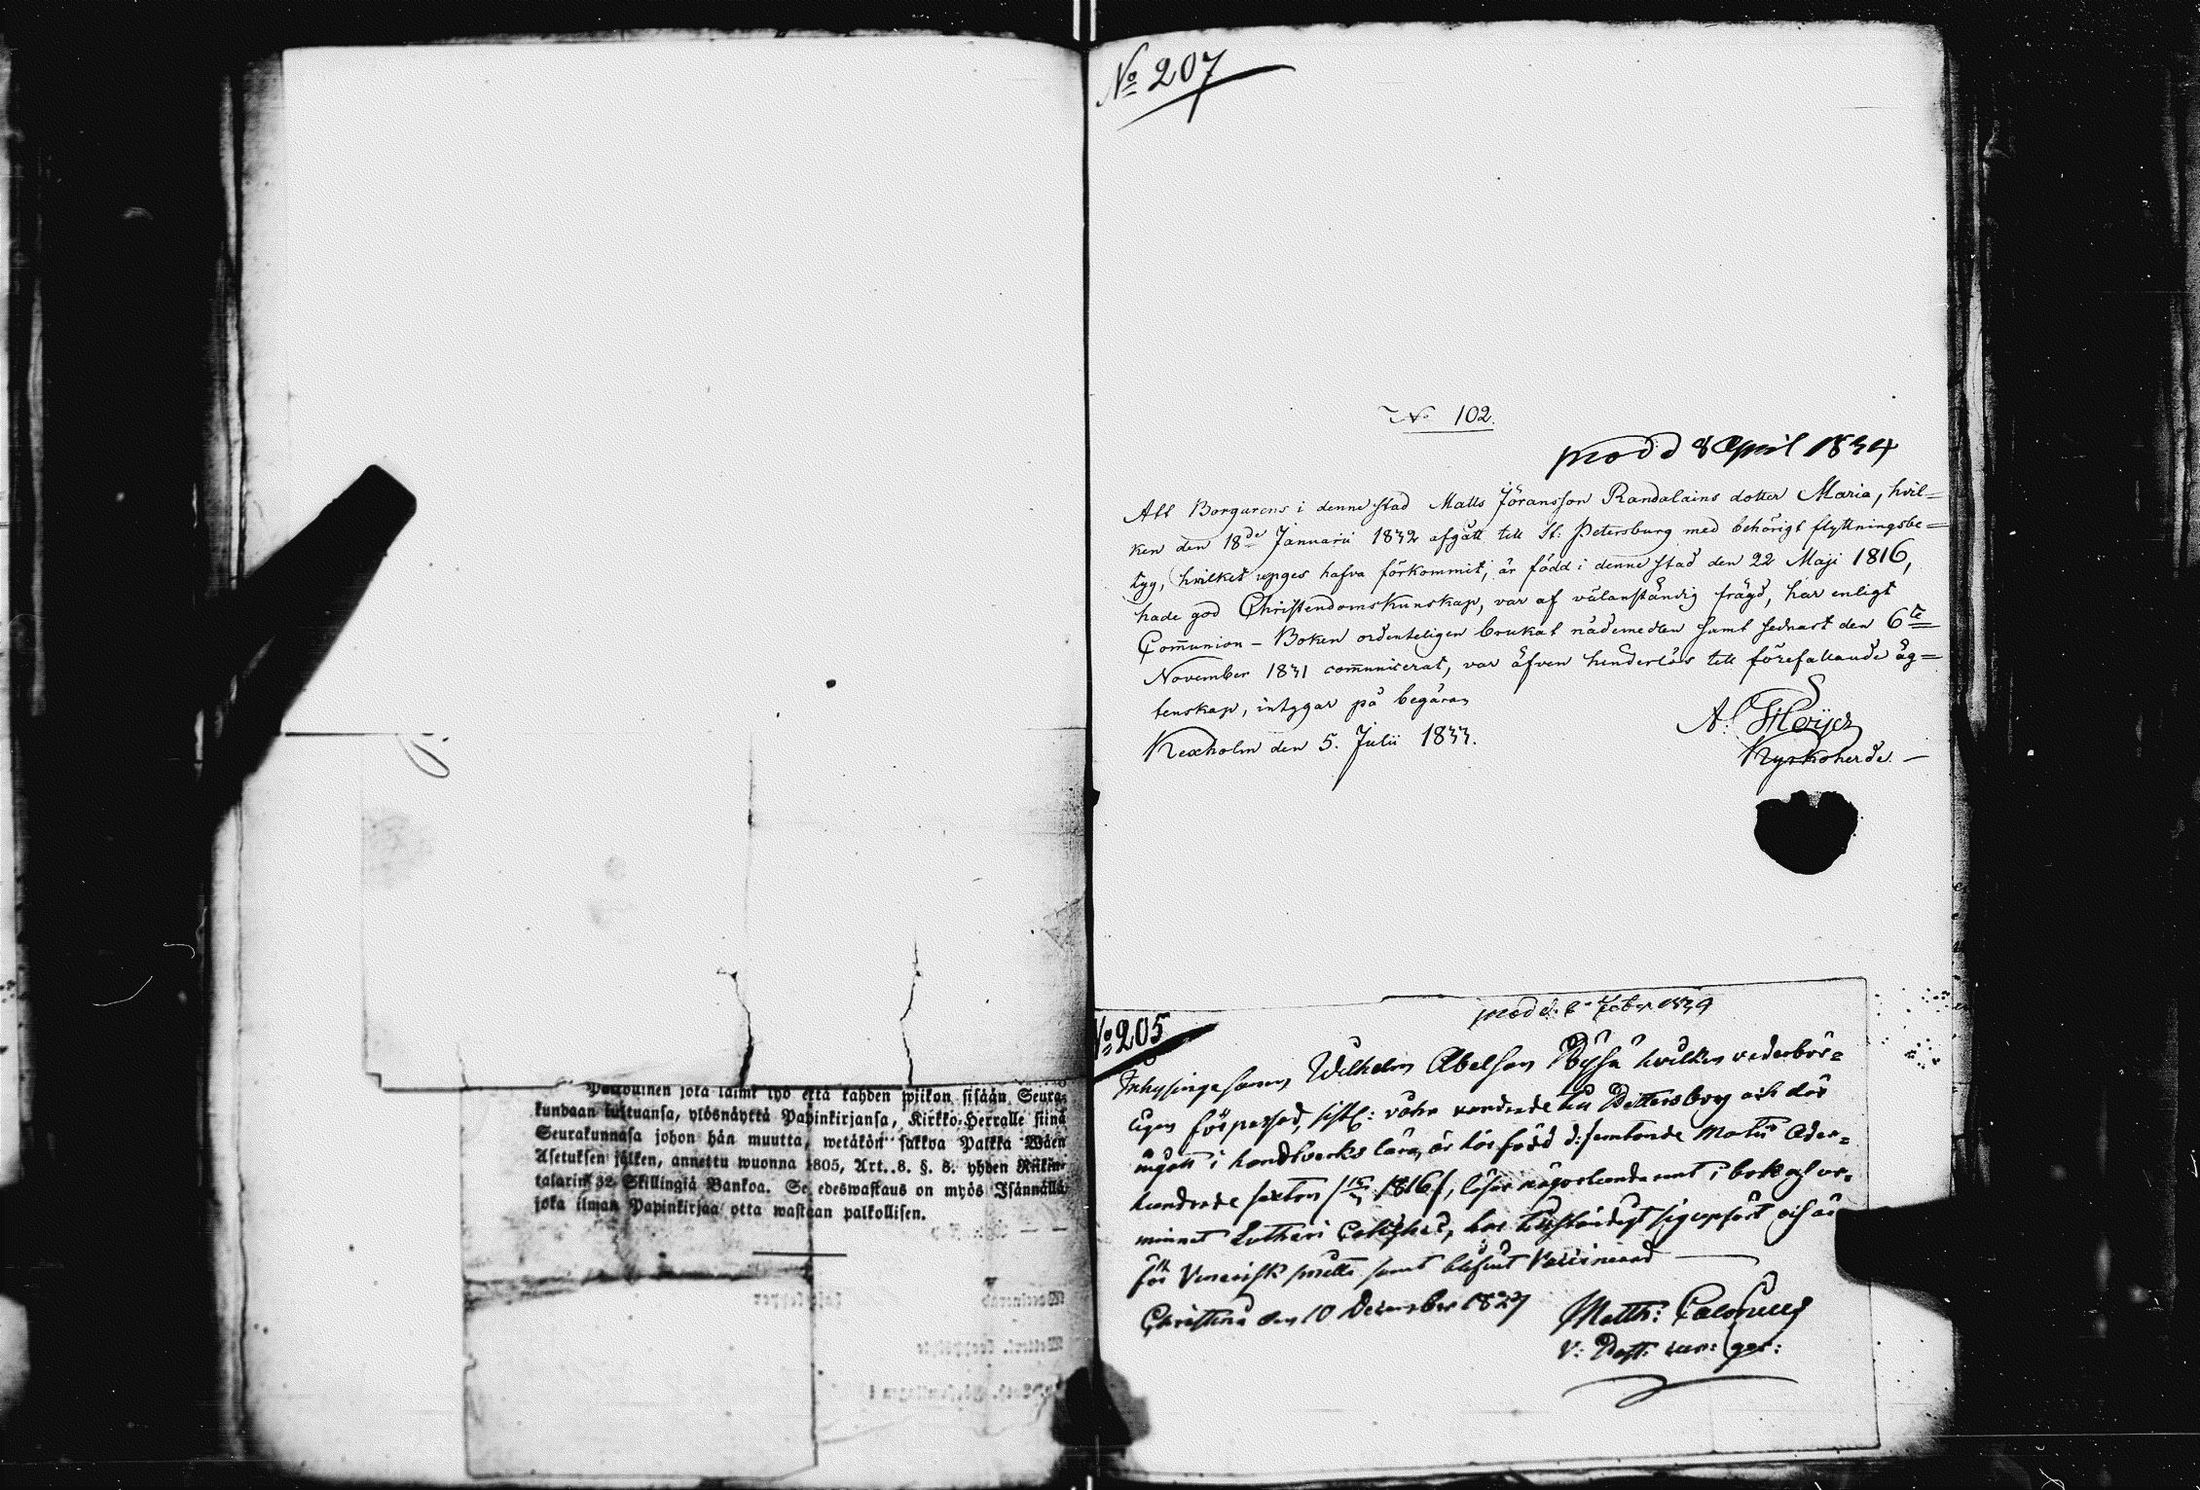 Palwolinen joka laimi lyö että kahden wiikon sisään Seura-
kundaan tultuansa, ylösnäyttä Papinkirjansa, Kirkko-Herralle siinä
Seurakunnasa johon hän muutta, wetäkön sakkoa Palkka Wäen
Asetuksen jälken, annettu wuonna 1805, Art. 8. §. 8. yhden Riikin-
talarin 32 Skillingiä Bankoa. Se edeswastaus on myös Isännällä
joka ilman Papinkirjaa otta wastaan palkollisen.
No 207
No 102.
prod d 8 April 1834
Att Borgarens i denne stad Matts Jöransson Randalains dotter Maria, hvil=
ken den 18de Januarii 1832 afgått till St: Petersburg med behörigt flyttningsbe=
tyg, hvilket uppges hafva förkommit, är född i denne stad den 22 Maji 1816,
hade god Christendomskunskap, var af välanständig frägd, har enligt
Communion-Boken ordenteligen brukat nådemedlen samt sednast den 6te
November 1831 communicerat, var äfven hinderlös till förefallande äg=
tenskap, intygar på begäran
Kexholm den 5. Julii 1833.
A:
Kyrkoherde.
No 205
prod d: 1834
Inhysinge sonen Wilhelm Abelson hvilken vederbör=
ligen förpassad, sistl: våhr vandrade till Pettersborg och der
ingått i handtverks lära, är här född d: femtonde Martii Ader=
hundrade sexton 1816, läser någorlunda rent i bok af
minnet Lutheri Cateches, har sig upfört och är
för Venerisk smitta samt blifvit Vaccinerad
Christina den 10 December 1827
Matth:
V: Past: